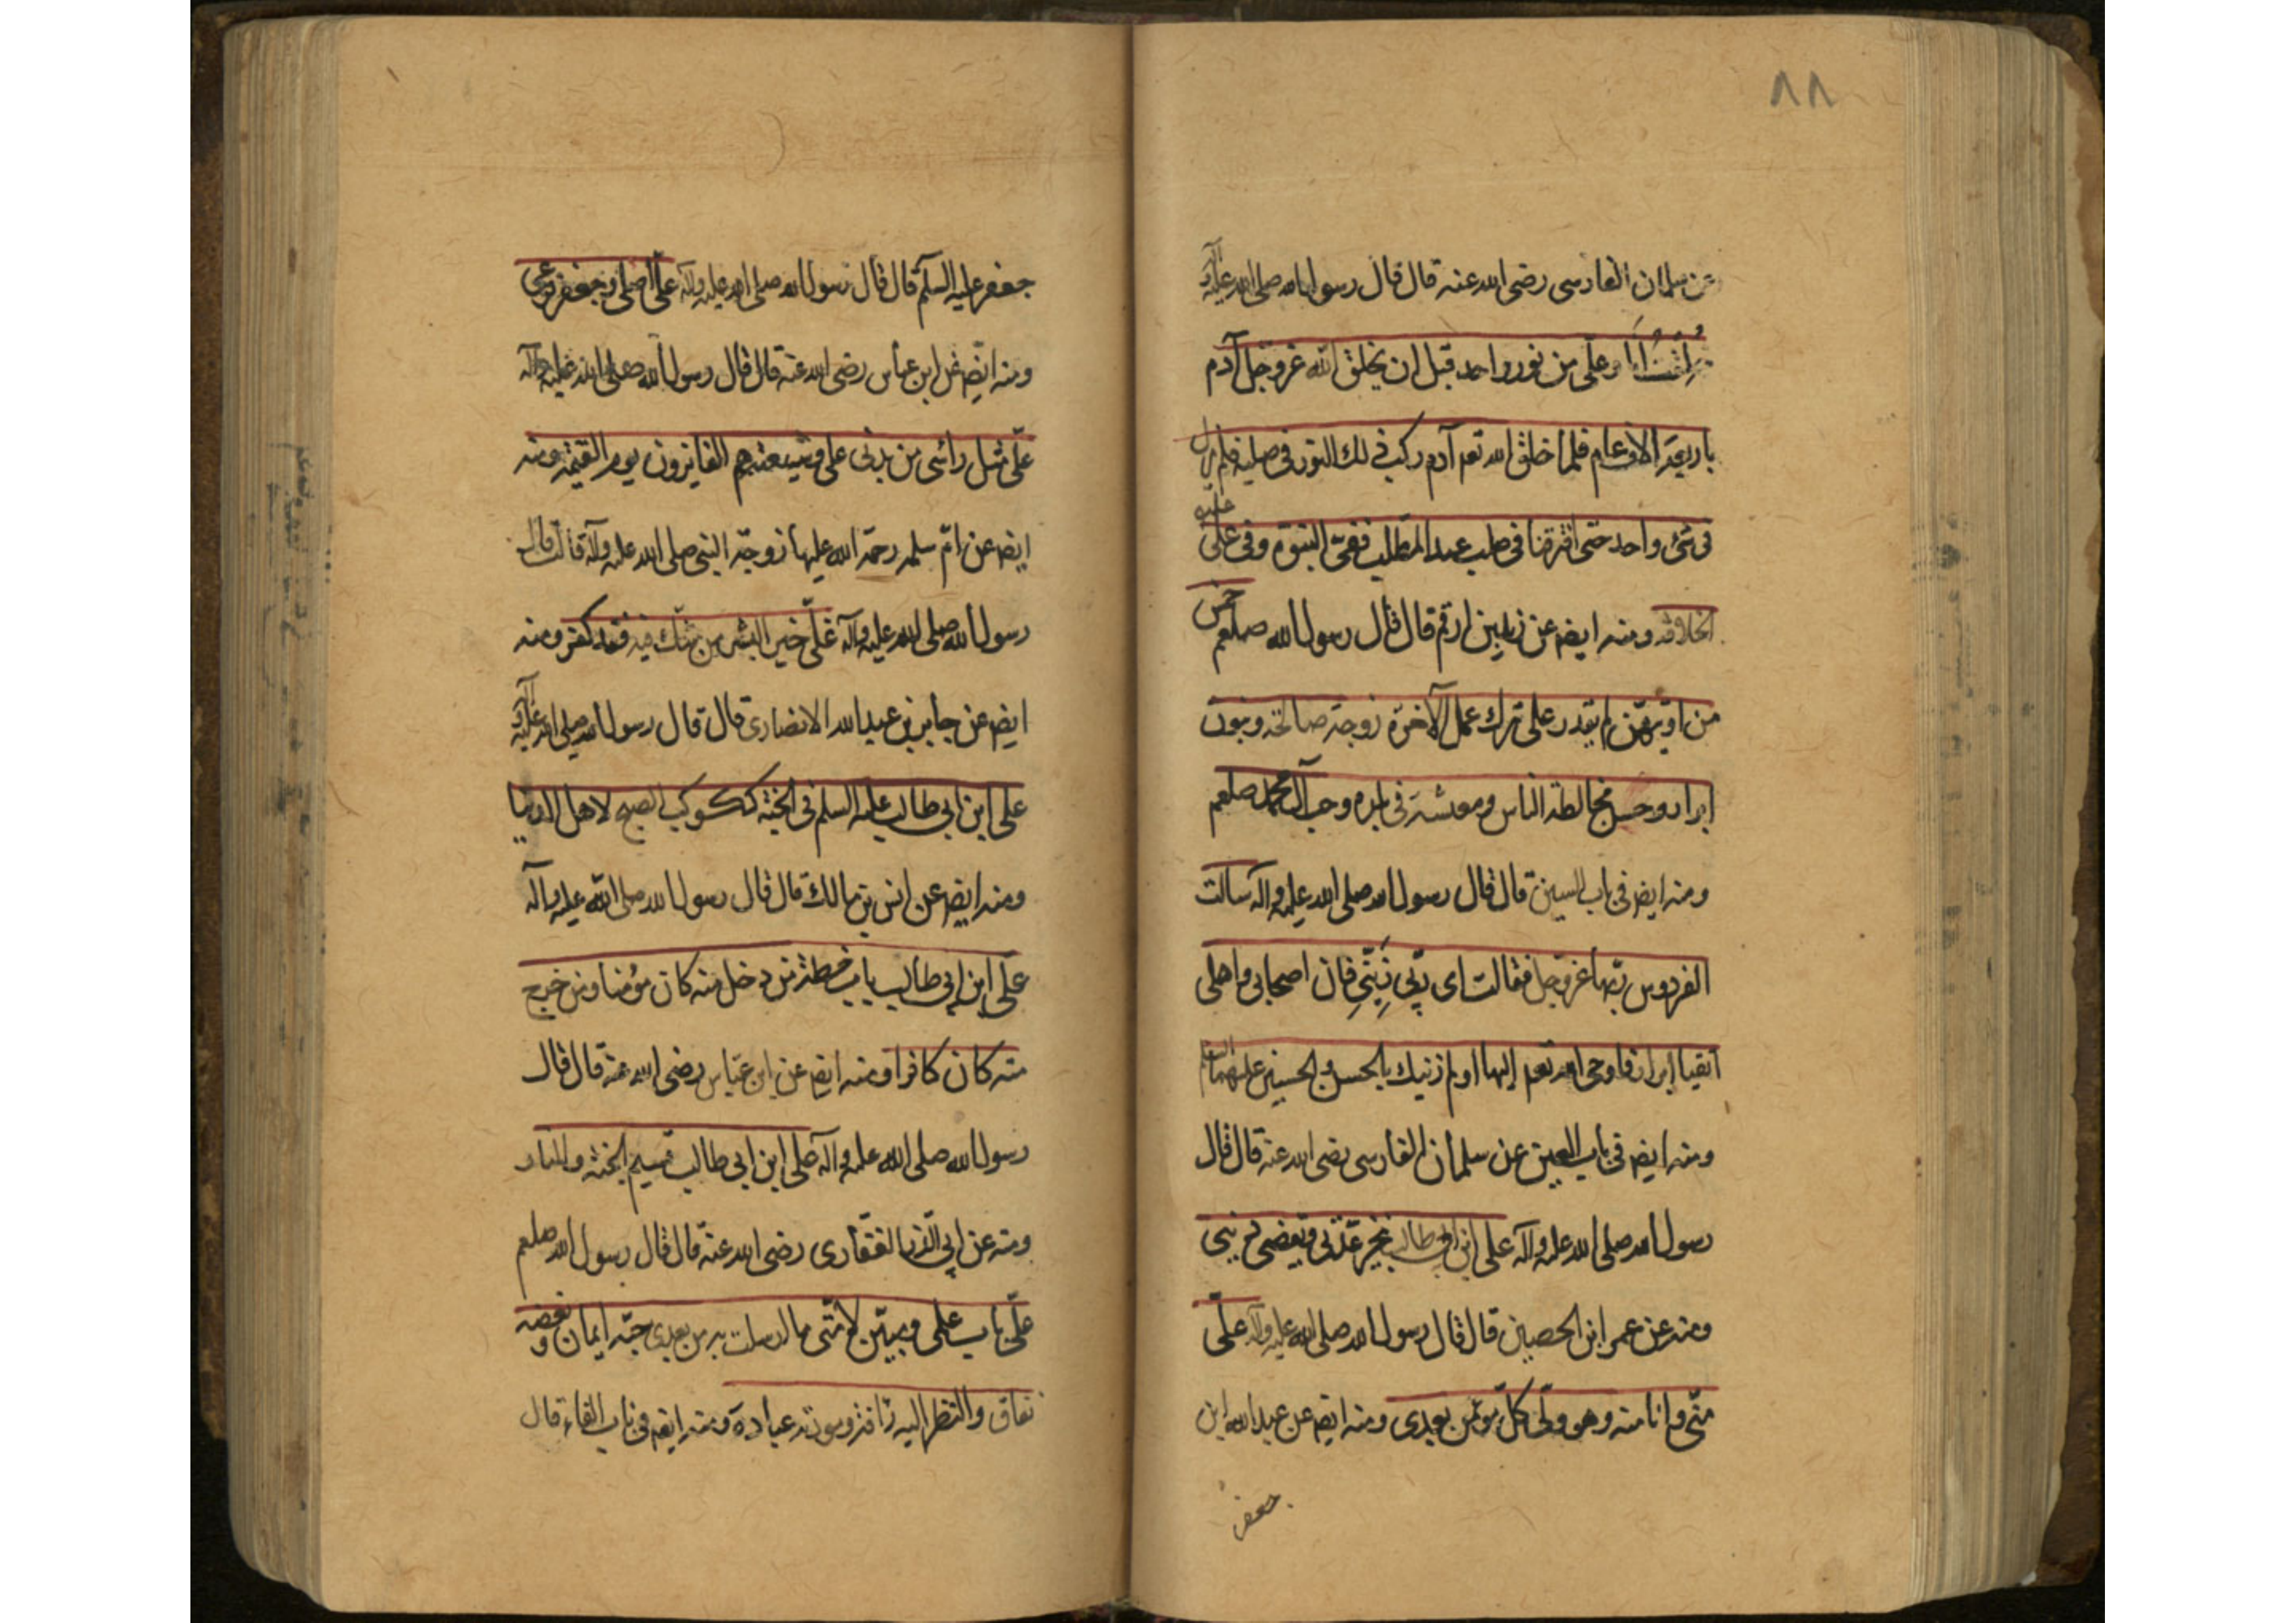 ٨٨
عن سلمان الفارسى رضى الله عنه قال قال رسول الله صلى الله عليه وآله
خلقت انا وعلى من نور واحد قبل ان يخلق الله عز وجل آدم
باربعة الاف عام فلما خلق الله تعم آدم ركب ذلك النور فى صلبه فلم يزل
فى شئ واحد حتى افترقنا فى صلب عبد المطلب ففىّ النبوة وفى علىّ
الخلافة ومنه ايضا عن زيد بن ارقم قال قال رسول الله صلعم خمس
من اوتيهنّ لم يقدر على ترك عمل الآخرة زوجة صالحة وبنون
ابرار وحسن مخالطة الناس ومعيشة فى بلده وحب آل محمد صلعم
ومنه ايضا فى باب السين قال قال رسول الله صلى الله عليه وآله سالت
الفردوس ربّها عز وجل فقالت اى ربّى زيّنّى فان اصحابى واهلى
اتقيا ابرار فاوحى الله تعم اليها اولم ازنيك بالحسن والحسين عليهما السلم
ومنه ايضا فى باب العين عن سلمان الفارسى رضى الله عنه قال قال
رسول الله صلى الله عليه وآله على ابن ابى طالب
ومنه عن عمر ابن الحصين قال قال رسول الله صلى الله عليه وآله علىّ
منّى وانا منه وهو ولىّ كلّ مؤمن بعدى ومنه ايضا عن عبد الله ابن
جعفر
جعفر عليه السلم قال قال رسول الله صلى الله عليه وآله علىّ اصلى وجعفر فرعى
ومنه ايضا عن ابن عباس رضى الله عنه قال قال رسول الله صلى الله عليه وآله
علىّ مثل رأسى من بدنى على وشيعته هم الفايزون يوم القيمة ومنه
ايضا عن امّ سلمه رحمة الله عليها زوجة النبى صلى الله عليه وآله قالت قال
رسول الله صلى الله عليه وآله علىّ خير البشر من شكّ فيه فقد كفر ومنه
ايضا عن جابر بن عبد الله الانصارى قال قال رسول الله صلى الله عليه وآله
على ابن ابى طالب عليه السلم فى الجنة ككوكب الصبح لاهل الدنيا
ومنه ايضا عن انس بن مالك قال قال رسول الله صلى الله عليه وآله
على ابن ابى طالب باب حطة من دخل منه كان مؤمنا ومن خرج
منه كان كافرا ومنه ايضا عن ابن عباس رضى الله عنه قال قال
رسول الله صلى الله عليه وآله على ابن ابى طالب قسيم الجنة والنار
ومنه عن ابى الذر الغفارى رضى الله عنه قال قال رسول الله صلعم
علىّ باب علمى ومبيّن لامّتى ما ارسلت به من بعدى حبّه ايمان وبغضه
نفاق والنظر اليه رافة ومودته عبادة ومنه ايضا فى باب الفاء قال